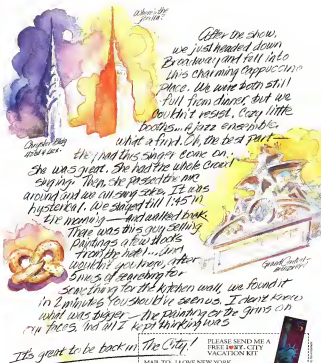 Where's the
gorilla?
After the show,
we just headed down
Broadway and fell into
this charming cappuccino
place. We were both still
full from dinner, but we
couldn't resist. Cozy little
booths... A jazz ensemble,
what a find. Oh, the best part—
they had this singer come on.
She was great. She had the whole crowd
singing. Then, she passed the mike
around and we all sang solos. It was
hysterical. We stayed till 1:45 in
the morning — and walked back.
There was this guy selling
paintings a few doors
from the hotel... and
wouldn't you know, after
of searching for
something for the kitchen wall, we found it
in 2 minutes. You should've seen us. I don't know
what was bigger — the painting or the grins on
our faces. And all I kept thinking was
It's great to be back in The City!
Chrysler Bldg.
Grand Central
PLEASE SEND ME A
FREE I NY. CITY
VACATION KIT
MAIL TO: I LOVE NEW YORK